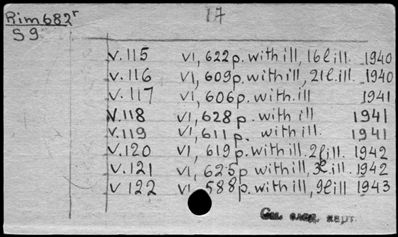 Rim682r 17
S9
v.115 VI, 622p. with ill, 16l ill. 1940
v.116 VI, 609p. with ill, 21l ill. 1940
v.117 VI, 606p. with ill 1941
v.118 VI, 628p. with ill 1941
v.119 VI, 611p. with ill. 1941
v.120 VI, 619p. with ill, 2l ill. 1942
v.121 VI, 625p with ill, 3l ill. 1942
v.122 VI, 588p. with ill, 9l ill 1943